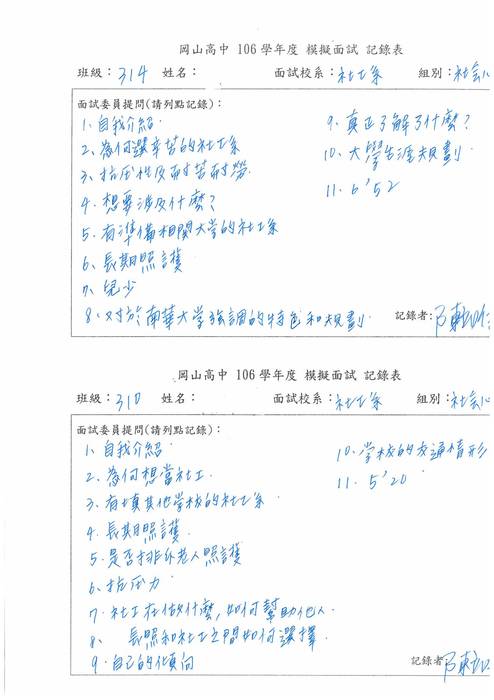 岡山高中 106 學年度 模擬面試 記錄表
班級：314 姓名： 面試校系：社工系 組別：社会心
面試委員提問(請列點記錄)：
1、自我介紹
2、為何選辛苦的社工系
3、抗压性及耐苦耐勞
4、想要涉及什麼？
5、有準備相関大学的社工系
6、長期照護
7、兒少
8、对於南華大学強調的特色和規劃
9、真正了解了什麼？
10、大學生涯規劃
11、6'52
記錄者：
岡山高中 106 學年度 模擬面試 記錄表
班級：310 姓名： 面試校系：社工系 組別：社会心
面試委員提問(請列點記錄)：
1、自我介紹
2、為何想當社工
3、有填其他学校的社工系
4、長期照護
5、是否排斥老人照護
6、抗压力
7、社工在做什麼，如何幫助他人
8、長照和社工之間如何選擇
9、自己的傾向
10、学校的交通情形
11、5'20
記錄者